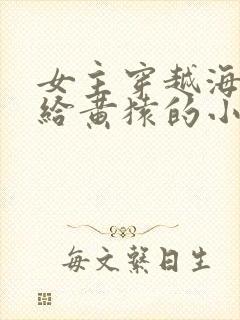 女主穿越海
給黄猿的小
每文繫日生